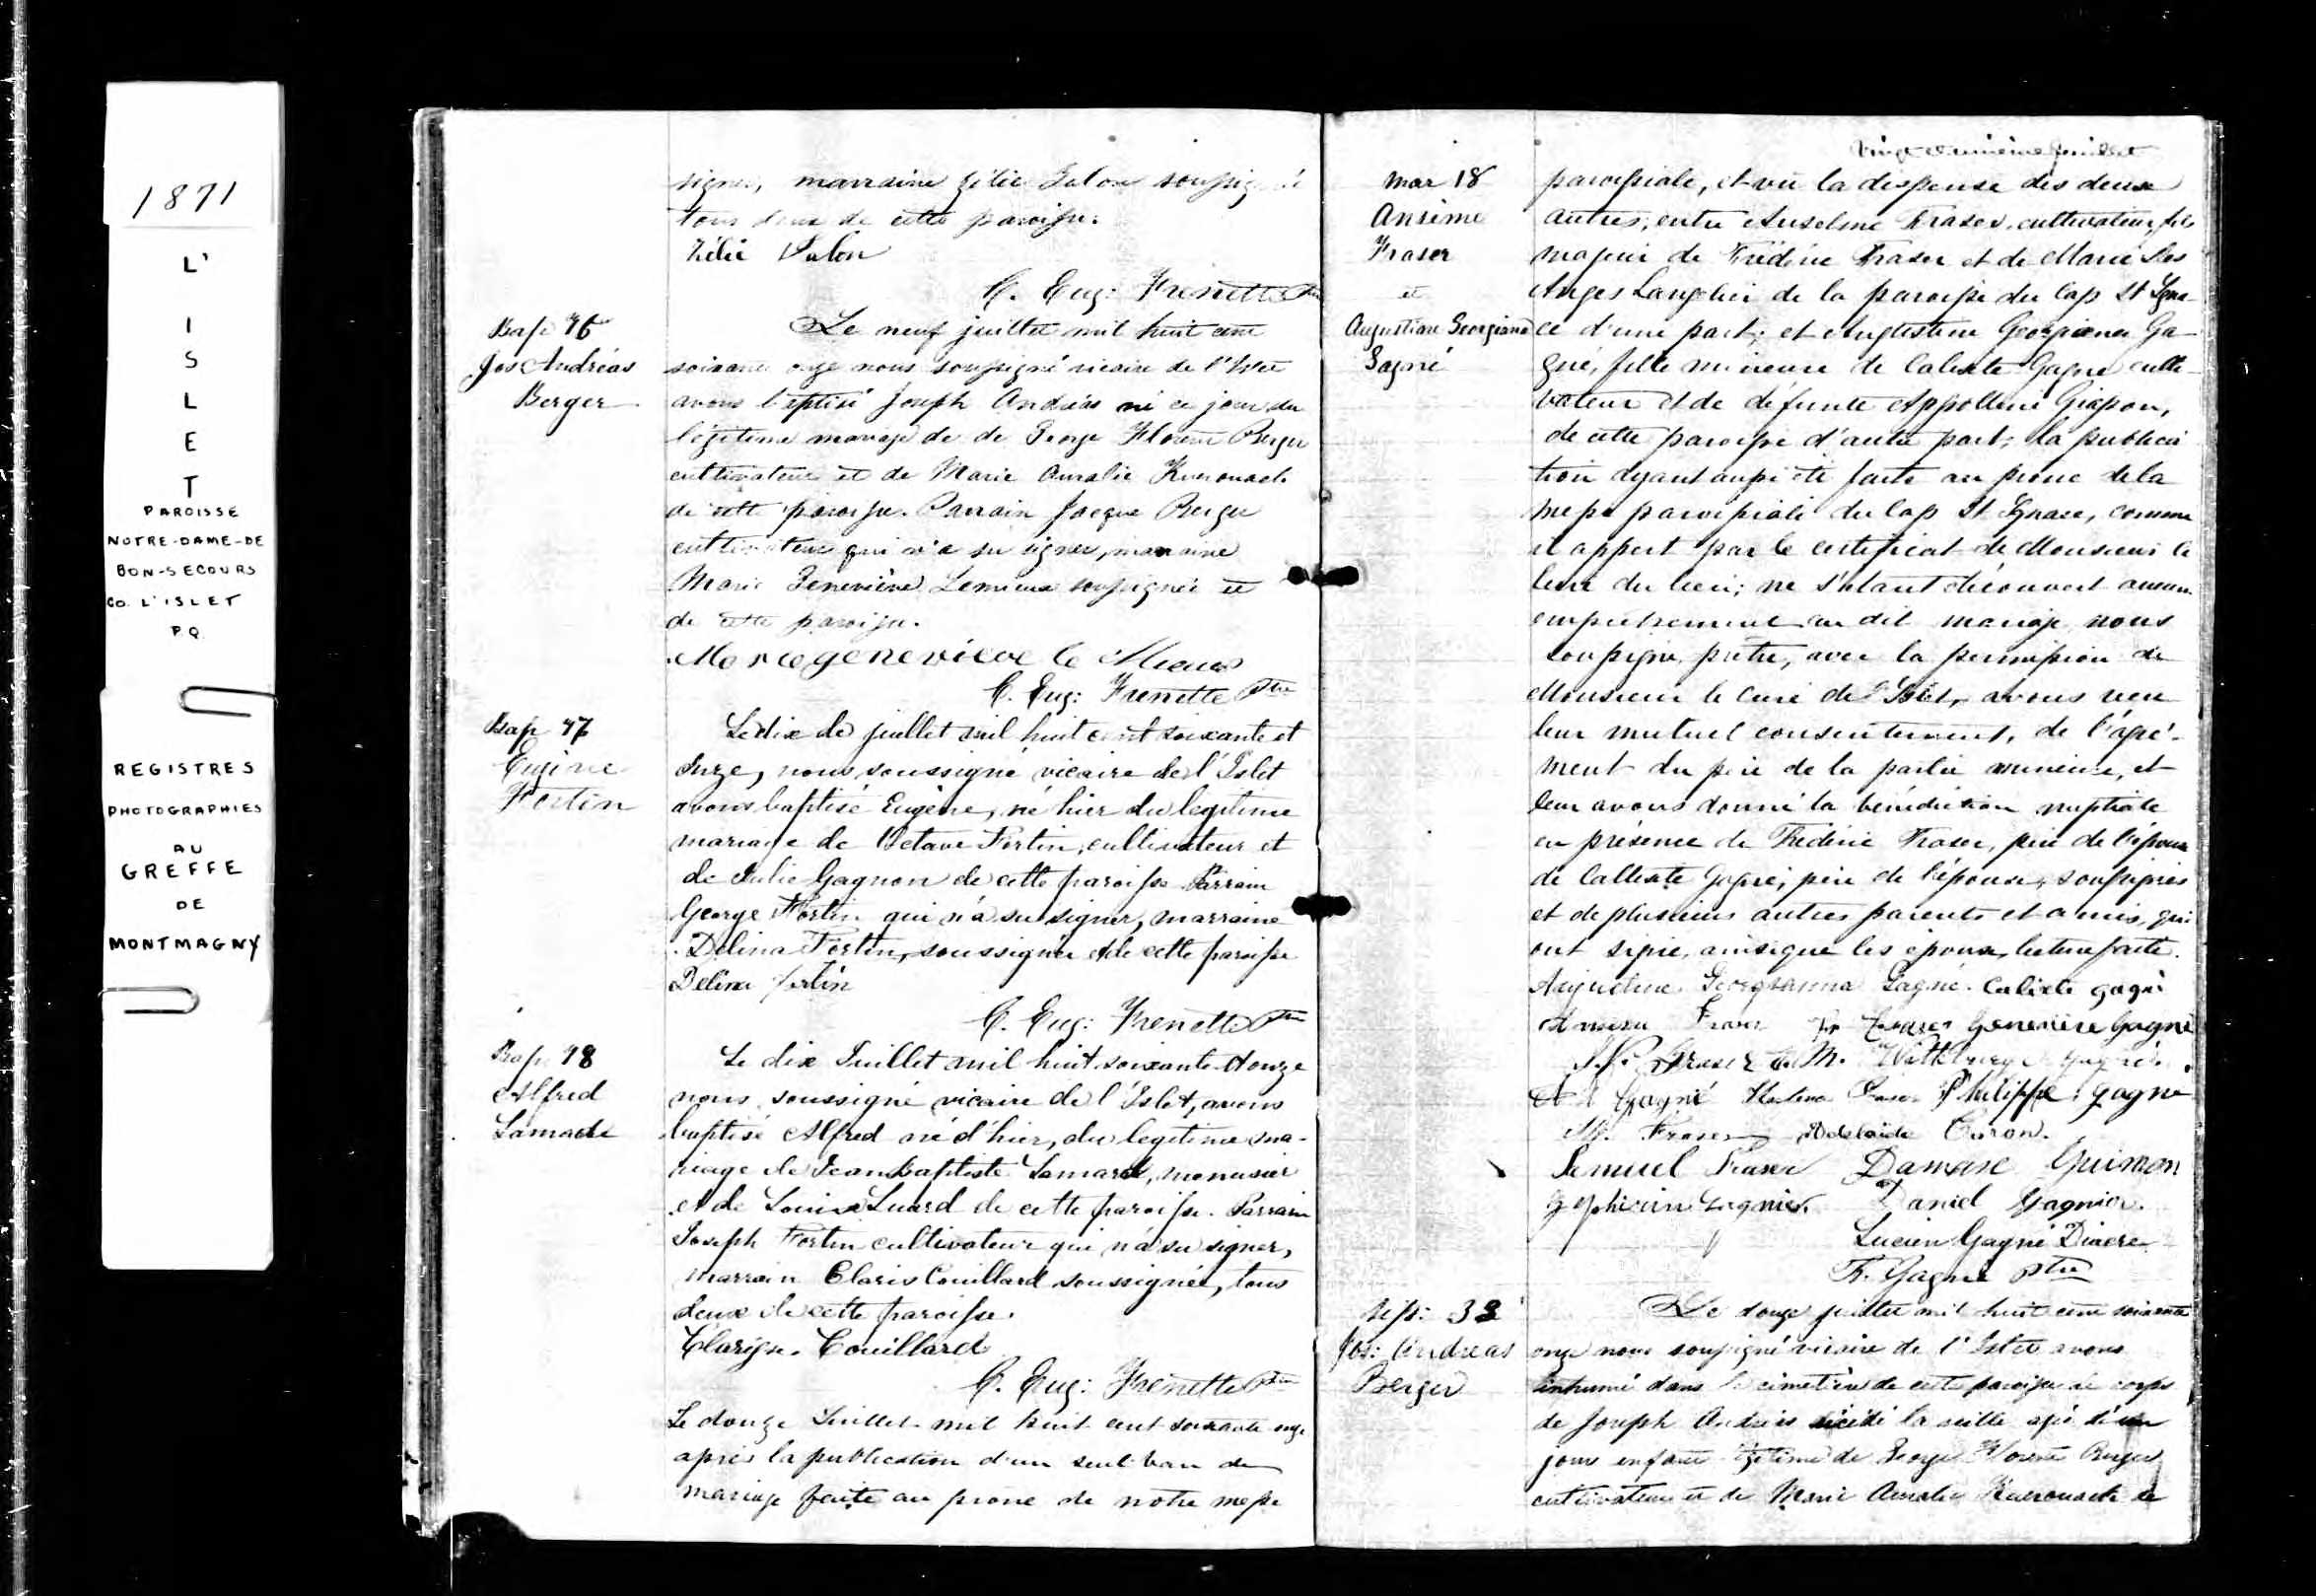 1871
L'
I
S
L
E
T
PAROISSE
NOTRE-DAME-DE
BON-SECOURS
CO. L'ISLET
P.Q.
REGISTRES
PHOTOGRAPHIES
AU
GREFFE
DE
MONTMAGNY
signer, marraine Zélie
tous deux de cette paroisse.
Zélie
C. Eug: Frenette Ptre
Bap 76
Jos Andréas
Berger
Le neuf juillet mil huit cent
soixante onze nous soussigné vicaire de l'Islet
avons baptisé Joseph Andréas né ce jour du
légitime mariage de de George Florence Berger
cultivateur et de Marie Aurélie Kuerouack
de cette paroisse. Parrain Jacque Berger
cultivateur qui n'a su signer, marraine
Marie Geneviève Lemieux soussignée et
de cette paroisse.
Marie geneviève le Mieux
C. Eug: Frenette Ptre
Bap 77
Eugène
Fortin
Le dix de juillet mil huit cent soixante et
onze, nous soussigné vicaire de l'Islet
avons baptisé Eugène, né hier du legitime
mariage de Octave Fortin, cultivateur et
de Julie Gagnon de cette paroisse Parrain
George Fortin qui n'a su signer, marraine
Delina Fortin, soussignée de cette paroisse
Delina fortin
C. Eug: Frenette Ptre
Bap 78
Alfred
Lamarde
Le dix Juillet mil huit soixante et onze
nous soussigné vicaire de l'Islet, avons
baptisé Alfred né d'hier, du legitime ma-
riage de Jean Baptiste Lamarde, menuisier
et de Louise Luard de cette paroisse. Parrain
Joseph Fortin cultivateur qui n'a su signer,
marrain Claris Couillard soussignée, tous
deux de cette paroisse.
Clarisse Couillard
C. Eug: Frenette Ptre
Le douze Juillet mil huit cent soixante onze
après la publication d'un seul ban de
mariage faite au prone de notre messe
Vingt deuxième feuillet
mar 18
Anseme
Fraser
et
Augustine Georgiana
Gagné
paroissiale, et vu la dispense des deux
autres, entre Anselme Fraser, cultivateur, fils
majeur de Frédéric Fraser et de Marie Des
Anges Langelier de la paroisse du Cap St Igna-
ce d'une part; et Augustine Georgiana Ga-
gné, fille mineure de Calixte Gagné culti-
vateur et de défunte Appolline Giasson,
de cette paroisse d'autre part; la publica
tion ayant aussi été faite au prone de la
messe paroissiale du Cap St Ignace, comme
il appert par le certificat de Monsieur le
Curé du lieu; ne s'étant découvert aucun
empêchement au dit mariage nous
soussigné prêtre, avec la permission de
Monsieur le Curé de l'Islet, avons reçu
leur mutuel consentement, de l'agré-
ment du père de la partie mineure, et
leur avons donné la bénédiction nuptiale
en présence de Frédéric Fraser, père de l'époux
de Callixte Gagné, père de l'épouse, soussignés
et de plusieurs autres parents et amis, qui
ont signé, ainsi que les époux, lecture faite.
Augustine Georgianna Gagné. Calixte gagné
Fraser Fr Fraser Geneviève Gagné
Fraser
Gagné Philippe gagné
Fraser Adelaide Caron.
Samuel Fraser Damase Guimon
Zephirin Gagnier. Daniel Gagnier.
Lucien Gagné Diacre
Th. Gagné ptre
Sép: 33
Jos: Andreas
Berger
Le douze juillet mil huit cent soixante
onze nous soussigné vicaire de l'Islet avons
inhumé dans le cimetière de cette paroisse le corps
de Joseph Andréas décédé la veille agé de
jours enfant légitime de George Florence Berger
cultivateur et de Marie Aurélie Kuerouack de